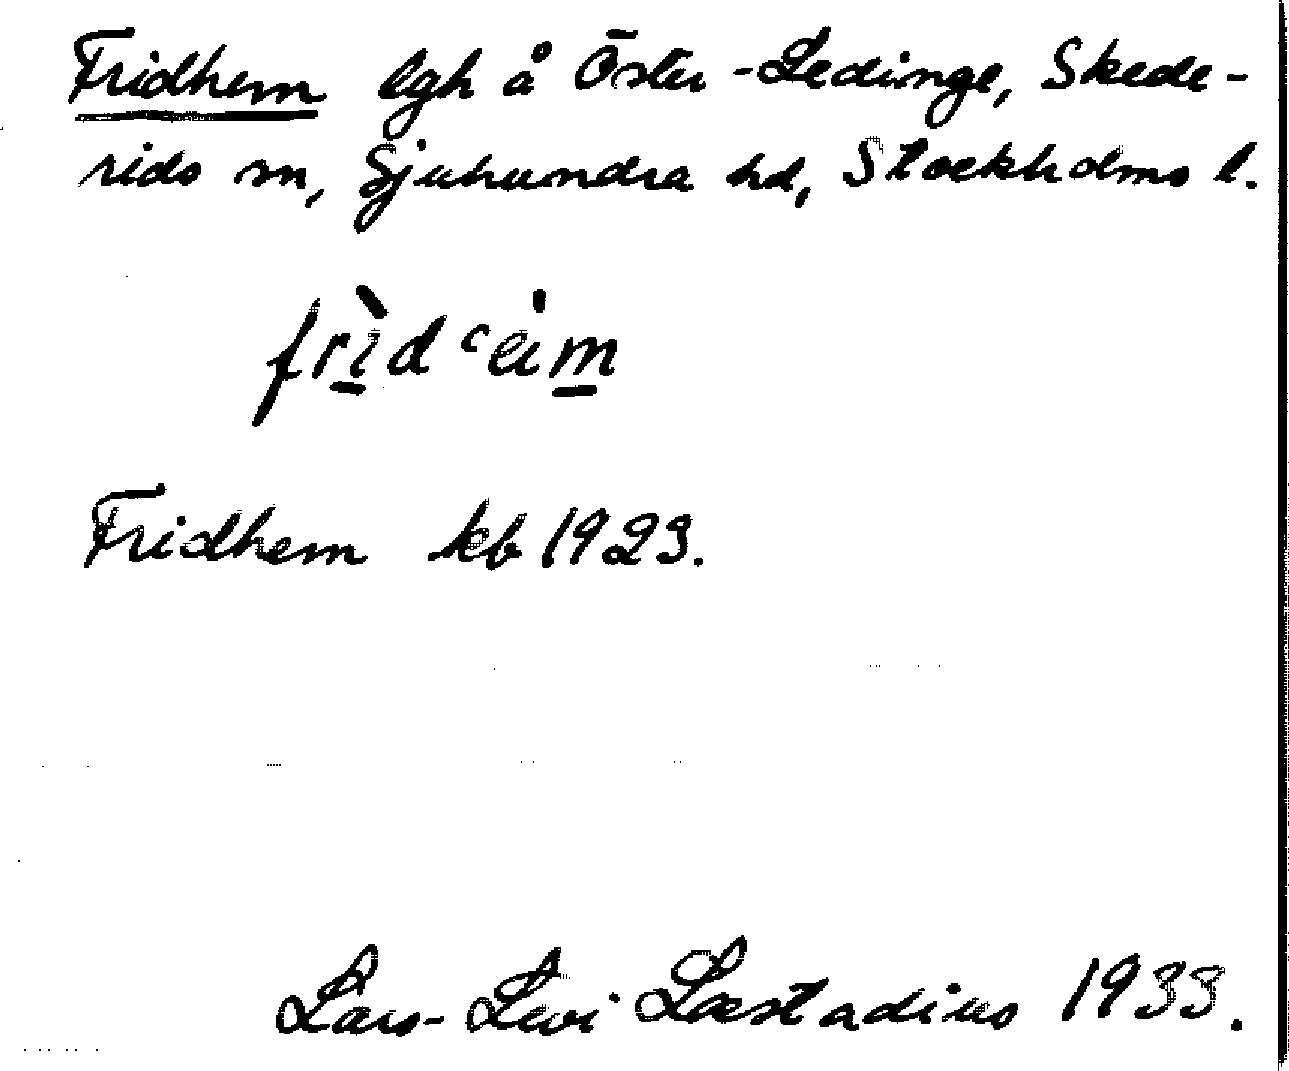 Fridhem lgh å Öster-Ledinge, Skede-
rids sn, Sjuhundra hd, Stockholms l.
Fridhem kb 1923.
Lars-Levi Læstadius 1933.